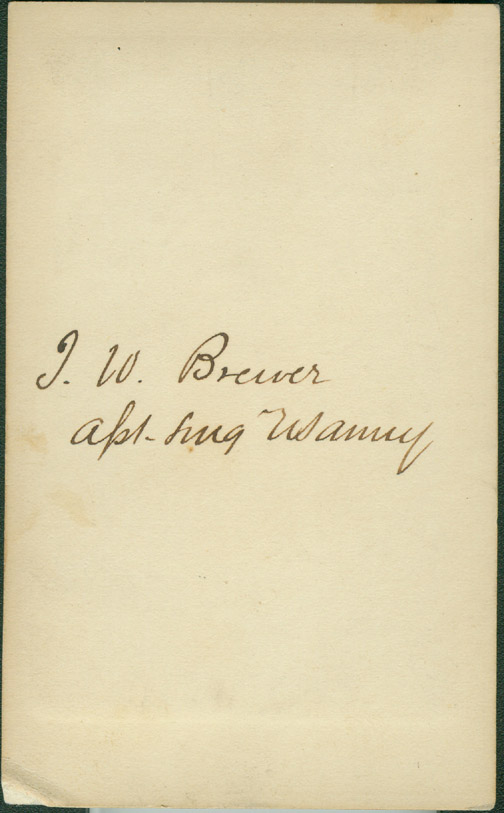 J. W. Brewer
Asst. Surg USarmy